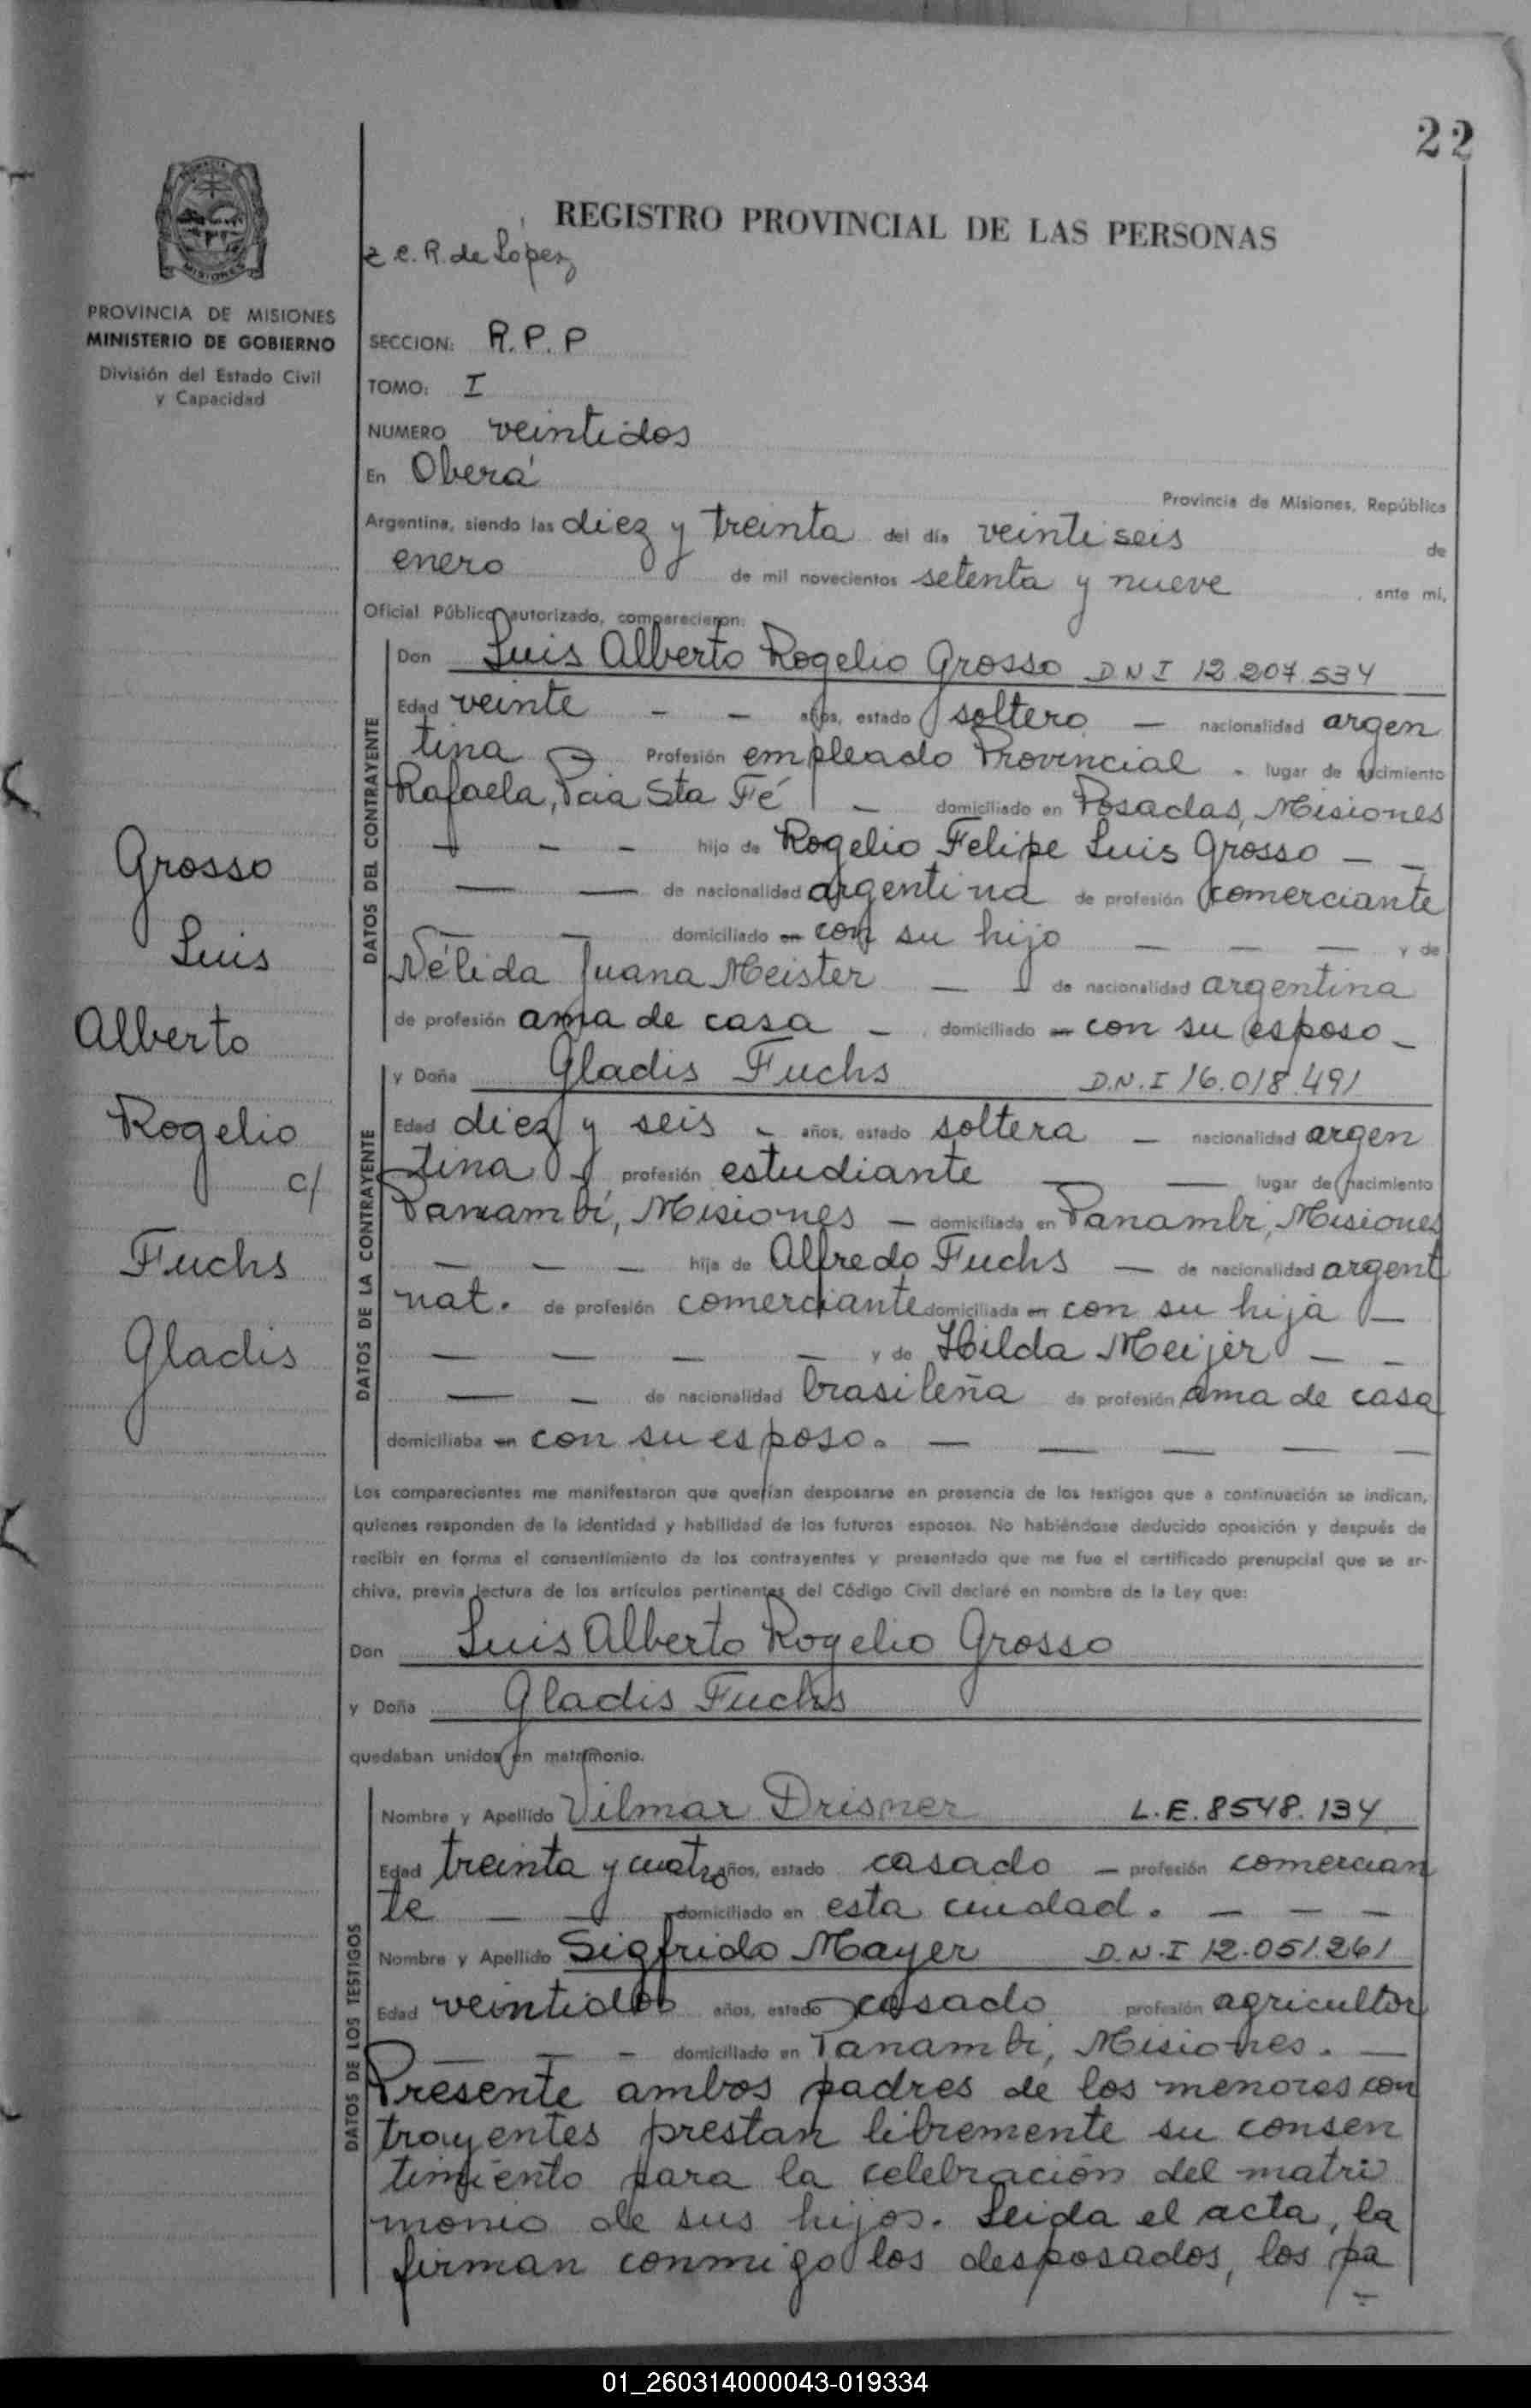 22
REGISTRO PROVINCIAL DE LAS PERSONAS
e. R. de López
PROVINCIA DE MISIONES
MINISTERIO DE GOBIERNO
División del Estado Civil
y Capacidad
SECCION: R.P.P
TOMO: I
NUMERO veintidos
En Oberá
Provincia de Misiones, República
Argentina, siendo las diez y treinta del día veintiseis de
enero de mil novecientos setenta y nueve, ante mí,
Oficial Público autorizado, comparecieron:
Grosso
Luis
Alberto
Rogelio
c/
Fuchs
Gladis
DATOS DEL CONTRAYENTE
Don Luis Alberto Rogelio Grosso D N I 12.207.534
Edad veinte - - años, estado soltero - nacionalidad argen
tina Profesión empleado Provincial - lugar de nacimiento
Rafaela, Pcia Sta Fé - domiciliado en Posadas, Misiones
- - - hijo de Rogelio Felipe Luis Grosso - -
- - de nacionalidad argentina de profesión comerciante
- - domiciliado en con su hijo - - - y de
Nélida Juana Meister - - de nacionalidad argentina
de profesión ama de casa - domiciliado en con su esposo -
DATOS DE LA CONTRAYENTE
y Doña Gladis Fuchs D.N.I 16.018.491
Edad diez y seis - años, estado soltera - nacionalidad argen
tina - profesión estudiante - - lugar de nacimiento
Panambí, Misiones - domiciliada en Panambi, Misiones
- - - hija de Alfredo Fuchs - de nacionalidad argent
nat. de profesión comerciante domiciliada en con su hija -
- - - - y de Hilda Meijer - -
- - de nacionalidad brasileña de profesión ama de casa
domiciliaba en con su esposo. - - - - -
Los comparecientes me manifestaron que querían desposarse en presencia de los testigos que a continuación se indican,
quienes responden de la identidad y habilidad de los futuros esposos. No habiéndose deducido oposición y después de
recibir en forma el consentimiento de los contrayentes y presentado que me fue el certificado prenupcial que se ar-
chiva, previa lectura de los artículos pertinentes del Código Civil declaré en nombre de la Ley que:
Don Luis Alberto Rogelio Grosso
y Doña Gladis Fuchs
quedaban unidos en matrimonio.
DATOS DE LOS TESTIGOS
Nombre y Apellido Vilmar Drisner L.E. 8548.134
Edad treinta y cuatro años, estado casado - profesión comercian
te - - domiciliado en esta ciudad. - - -
Nombre y Apellido Sigfrido Mayer D.N.I 12.051.261
Edad veintidos años, estado casado profesión agricultor
- - - domiciliado en Panambi, Misiones. -
Presente ambos padres de los menores con
trayentes prestan libremente su consen
timiento para la celebración del matri
monio de sus hijos. Leida el acta, la
firman conmigo los desposados, los pa
01_260314000043-019334